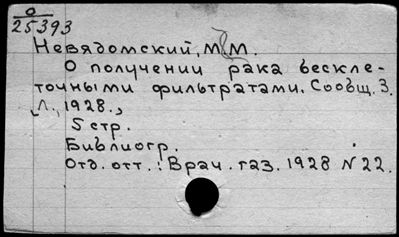 О
25393
Невядомский, М М.
О получении рака бескле-
точными фильтратами. Сообщ. 3.
Л., 1928.,
5 стр.
Библиогр.
Отд. отт.: Врач. газ. 1928 N 22.